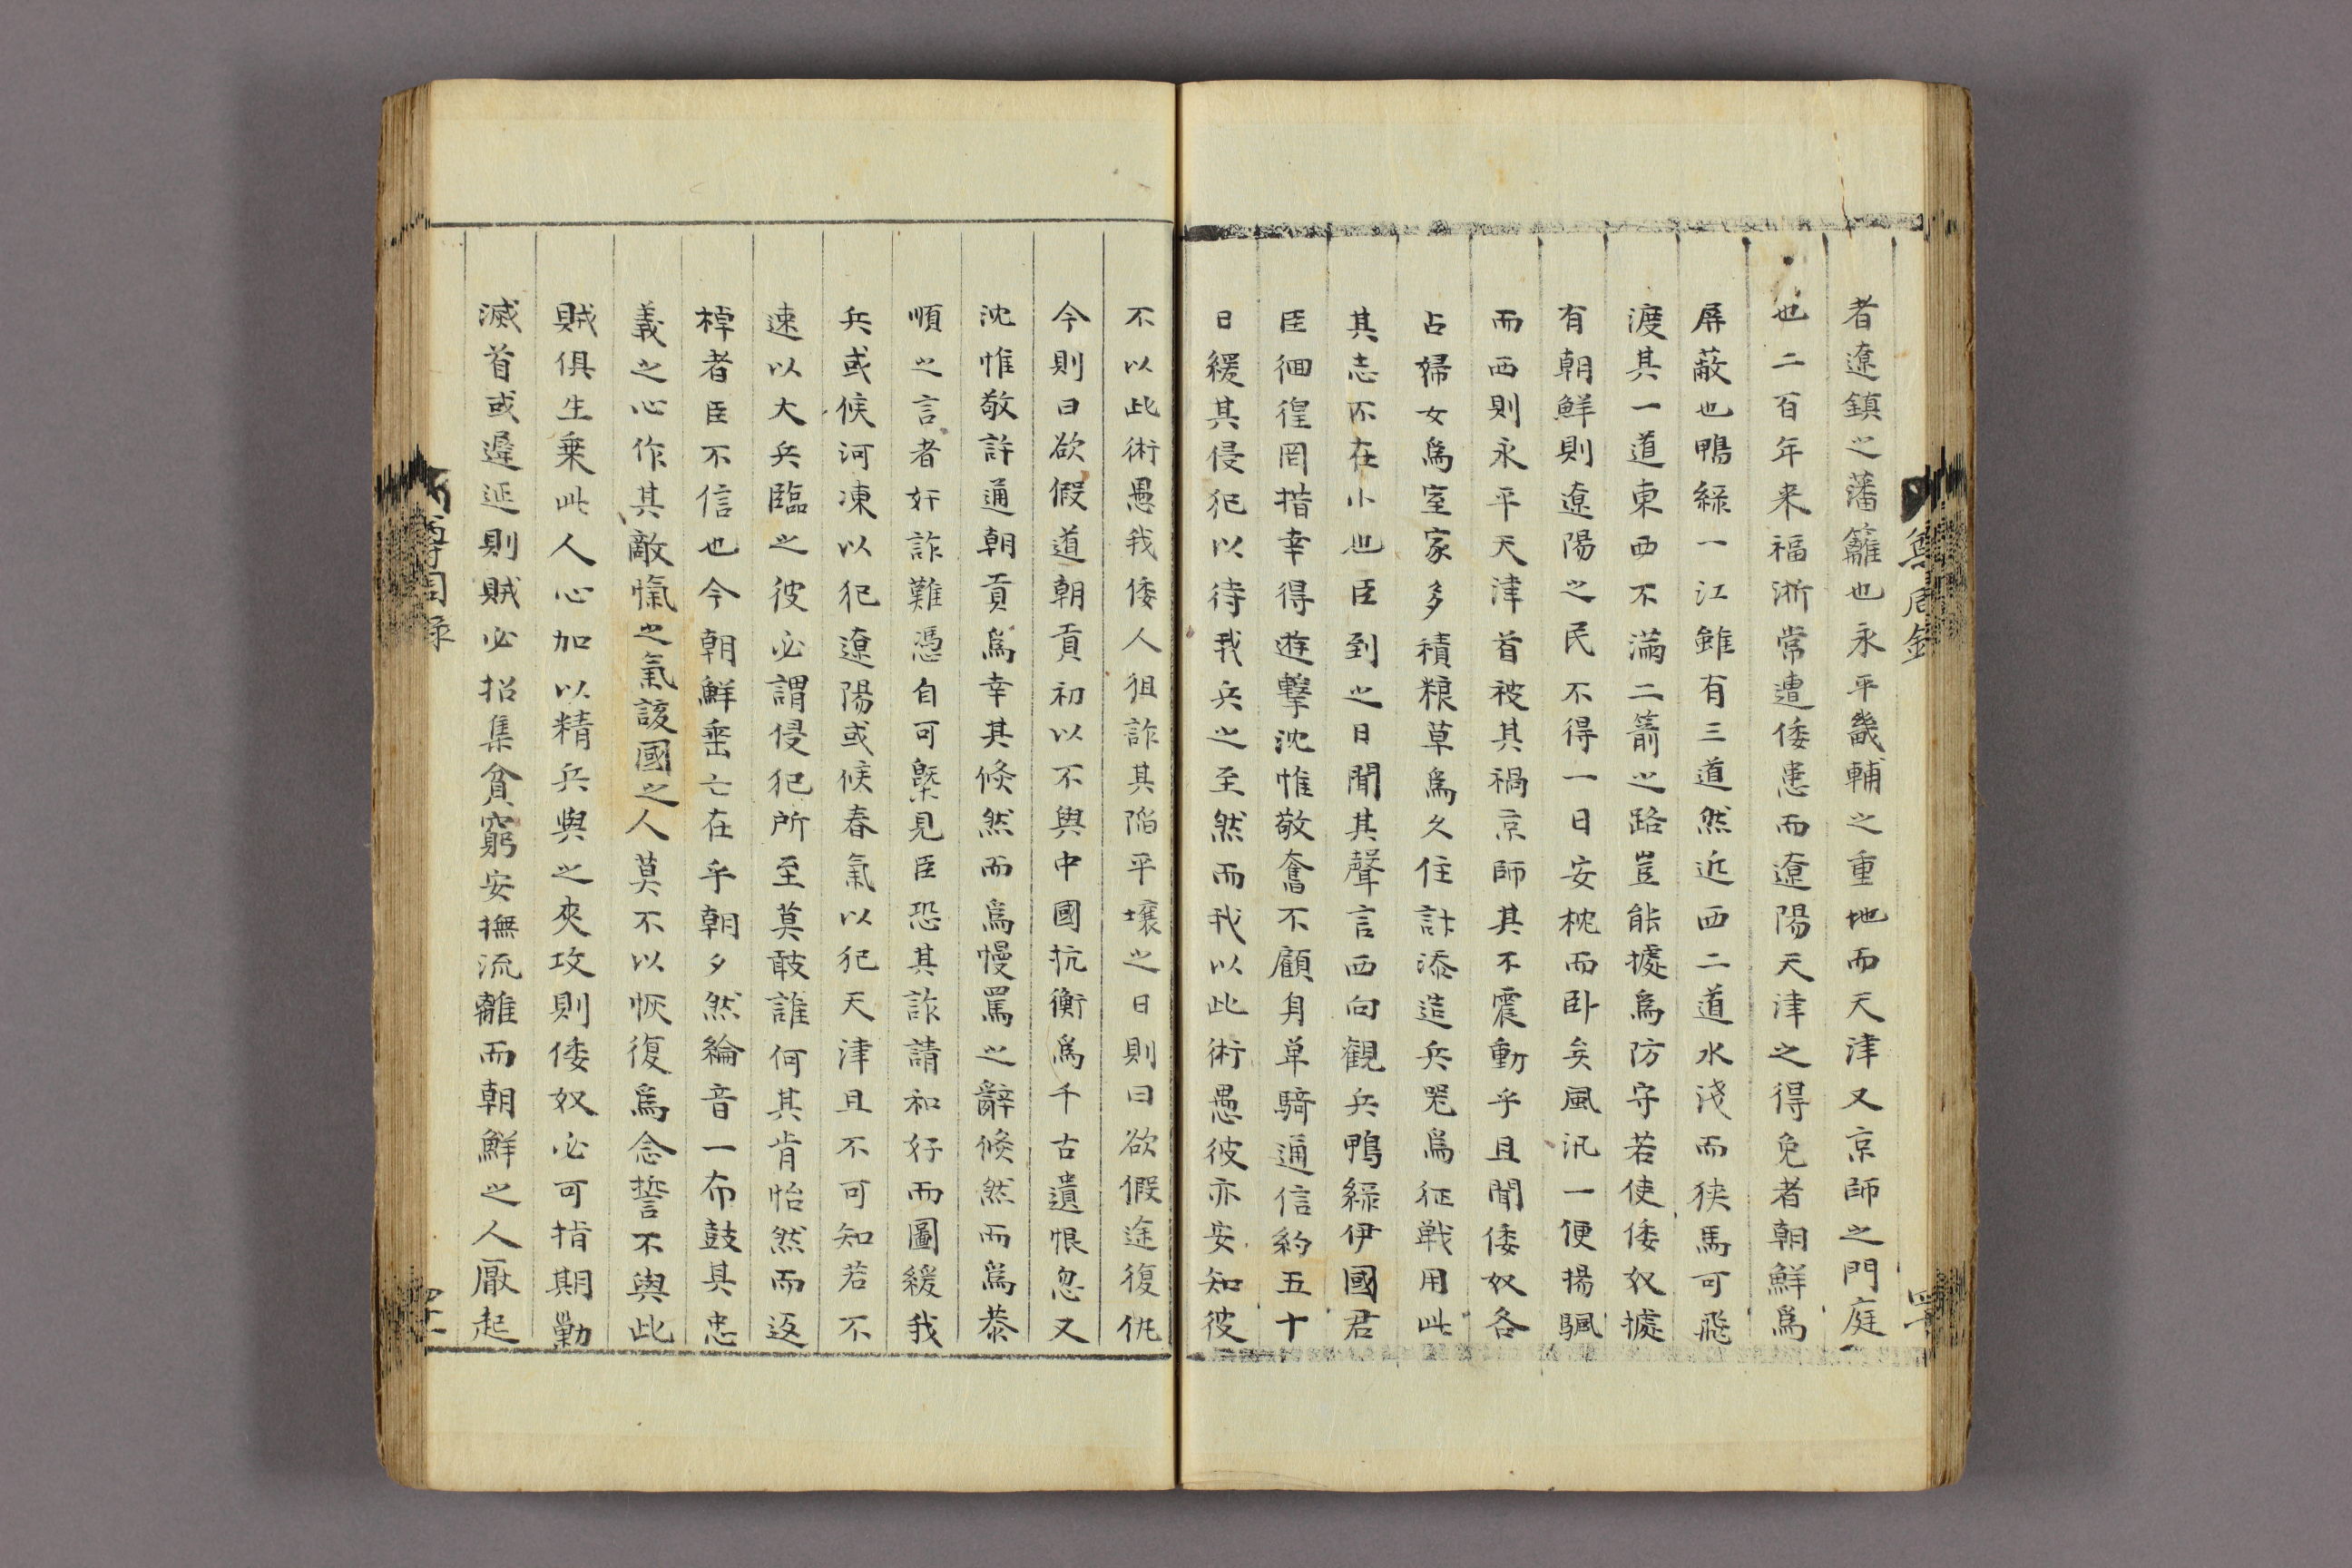 者遼鎮之藩籬也永平畿輔之重地而天津又京師之門庭
也二百年来福浙常遭倭患而遼陽天津之得免者朝鮮爲
屏蔽也鴨緑一江雖有三道然近西二道水淺而狹馬可飛
渡其一道東西不滿二箭之路豈能據爲防守若使倭奴據
有朝鮮則遼陽之民不得一日安枕而卧矣風汛一便揚颿
而西則永平天津首被其禍京師其不震動乎且聞倭奴各
占婦女爲室家多積粮草爲久住計添造兵器爲征戰用此
其志不在小也臣到之日聞其聲言西向觀兵鴨緑伊國君
臣徊徨罔措幸得遊擊沈惟敬奮不顧身单騎通信約五十
日緩其侵犯以待我兵之至然而我以此術愚彼亦安知彼
不以此術愚我倭人狙詐其陥平壤之日則曰欲假途復仇
今則曰欲假道朝貢初以不與中國抗衡爲千古遺恨忽又
沈惟敬許通朝貢爲幸其倐然而爲慢罵之辭倐然而爲恭
順之言者奸詐難憑自可槩見臣恐其詐請和好而圖緩我
兵或候河凍以犯遼陽或候春氣以犯天津且不可知若不
速以大兵臨之彼必謂侵犯所至莫敢誰何其肯怡然而返
棹者臣不信也今朝鮮垂亡在乎朝夕然綸音一布鼓其忠
義之心作其敵愾之氣該國之人莫不以恢復爲念誓不與此
賊俱生乗此人心加以精兵與之夾攻則倭奴必可指期勦
滅首或遲延則賊必招集貧窮安撫流離而朝鮮之人厭起